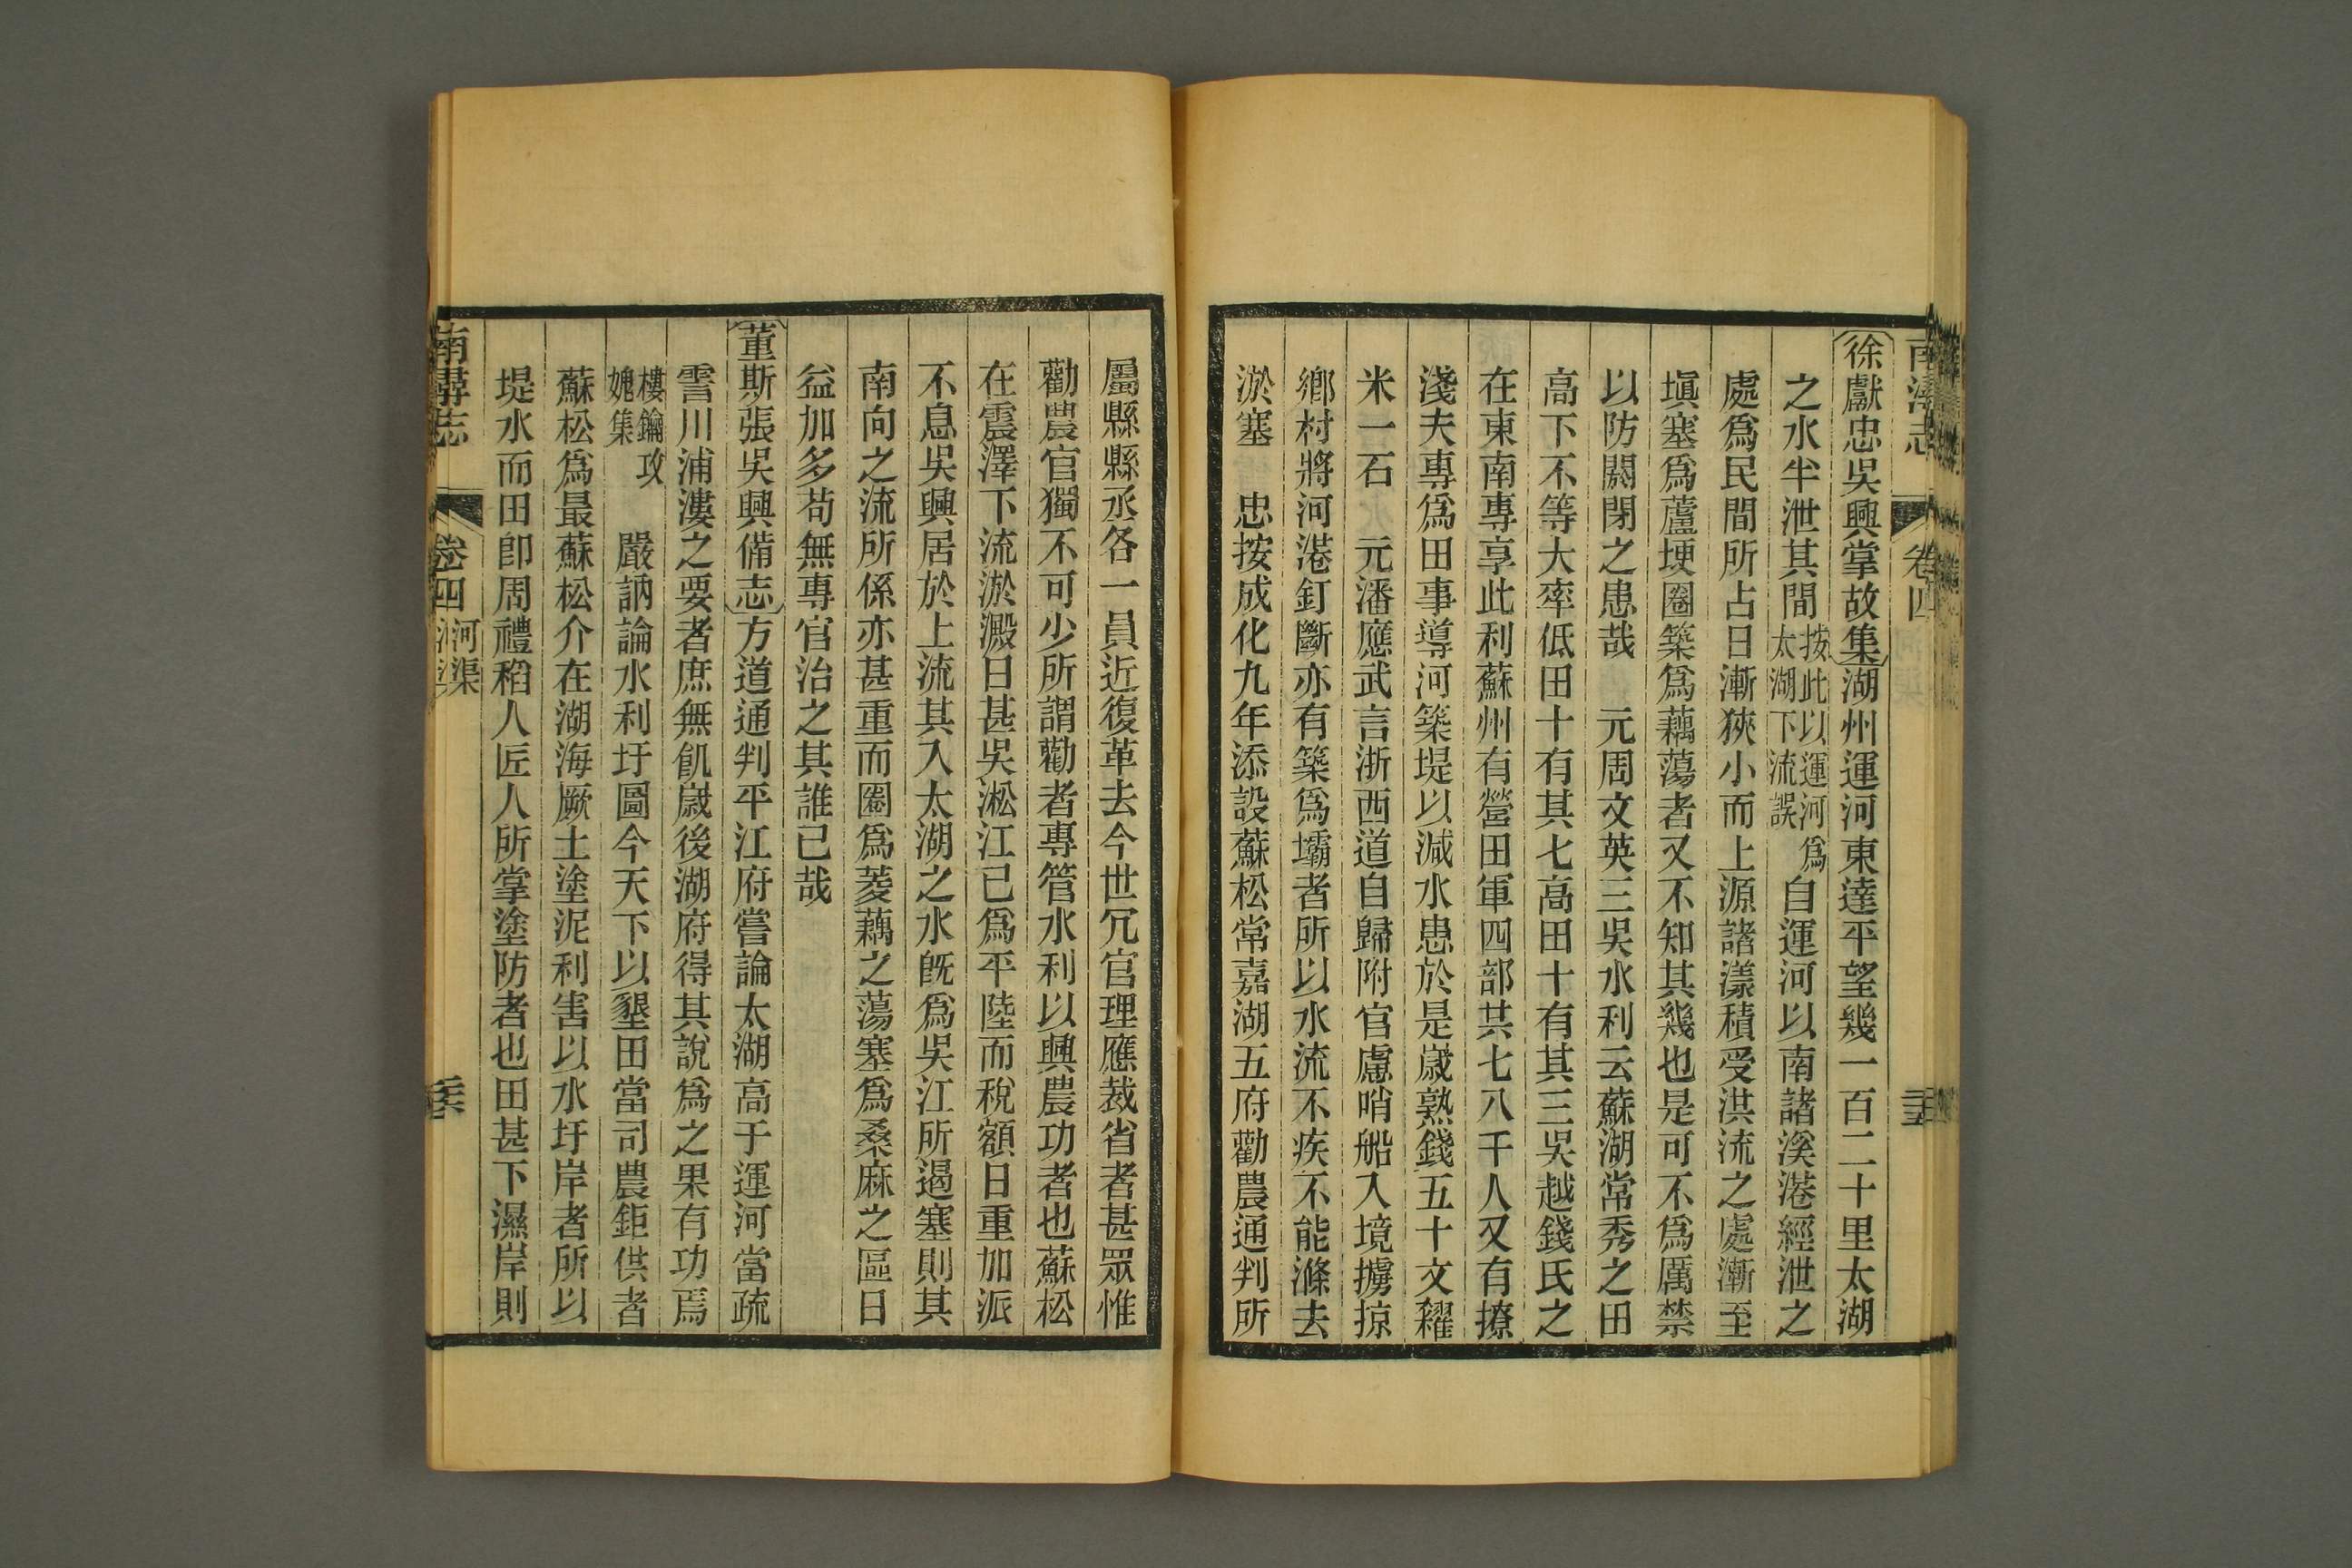 南潯志 卷四 二十五
徐獻忠吳興掌故集湖州運河東達平望幾一百二十里太湖
之水半泄其間按此以運河爲太湖下流誤自運河以南諸溪港經泄之
處爲民間所占日漸狹小而上源諸漾積受洪流之處漸至
塡塞爲蘆埂圈築爲藕蕩者又不知其幾也是可不爲厲禁
以防閼閉之患哉 元周文英三吳水利云蘇湖常秀之田
高下不等大率低田十有其七高田十有其三吳越錢氏之
在東南專享此利蘇州有營田軍四部共七八千人又有撩
淺夫專爲田事導河築堤以減水患於是歲熟錢五十文糴
米一石 元潘應武言浙西道自歸附官慮哨船入境擄掠
鄉村將河港釘斷亦有築爲壩者所以水流不疾不能滌去
淤塞 忠按成化九年添設蘇松常嘉湖五府勸農通判所
屬縣縣丞各一員近復革去今世冗官理應裁省者甚眾惟
勸農官獨不可少所謂勸者專管水利以興農功者也蘇松
在震澤下流淤澱日甚吳淞江已爲平陸而稅額日重加派
不息吳興居於上流其入太湖之水旣爲吳江所遏塞則其
南向之流所係亦甚重而圈爲菱藕之蕩塞爲桑麻之區日
益加多苟無專官治之其誰已哉
董斯張吳興備志方道通判平江府嘗論太湖高于運河當疏
霅川浦漊之要者庶無飢歲後湖府得其說爲之果有功焉
樓鑰攻媿集 嚴訥論水利圩圖今天下以墾田當司農鉅供者
蘇松爲最蘇松介在湖海厥土塗泥利害以水圩岸者所以
堤水而田卽周禮稻人匠人所掌塗防者也田甚下濕岸則
南潯志 卷四 河渠